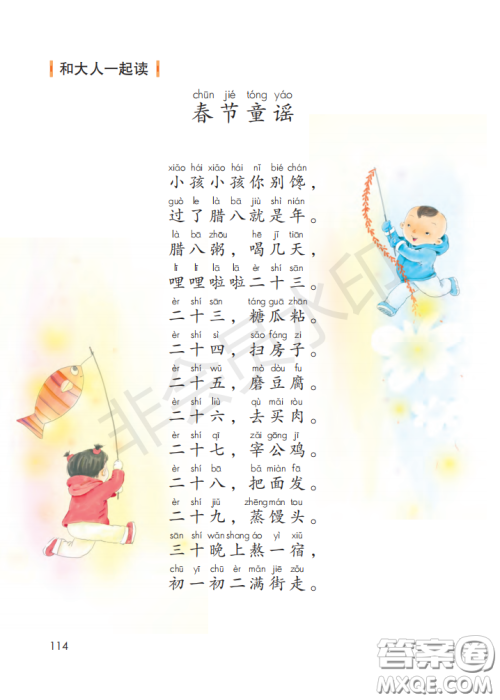 和大人一起读
chūn jié tóng yáo
春节童谣
xiǎo hái xiǎo hái nǐ bié chán
小孩小孩你别馋，
guò le là bā jiù shì nián
过了腊八就是年。
là bā zhōu hē jǐ tiān
腊八粥，喝几天，
lī lī lā lā èr shí sān
哩哩啦啦二十三。
èr shí sān táng guā zhān
二十三，糖瓜粘。
èr shí sì sǎo fáng zi
二十四，扫房子。
èr shí wǔ mò dòu fu
二十五，磨豆腐。
èr shí liù qù mǎi ròu
二十六，去买肉。
èr shí qī zǎi gōng jī
二十七，宰公鸡。
èr shí bā bǎ miàn fā
二十八，把面发。
èr shí jiǔ zhēng mán tou
二十九，蒸馒头。
sān shí wǎn shang áo yì xiǔ
三十晚上熬一宿，
chū yī chū èr mǎn jiē zǒu
初一初二满街走。
非会员水印
114
答案圈
MXQE.COM